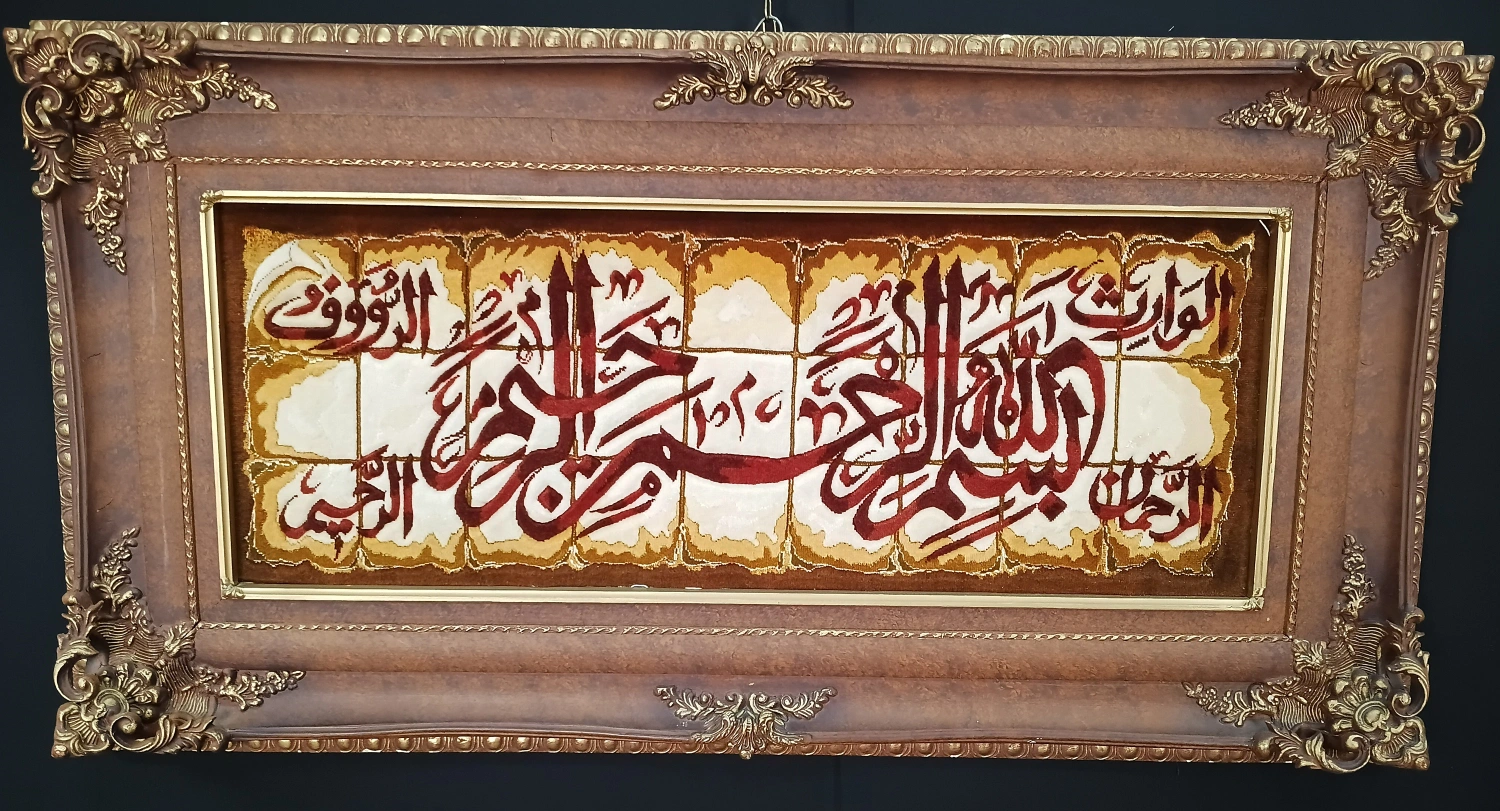 الوارث الرؤوف
بسم الله الرحمن الرحيم
الرحمن الرحيم